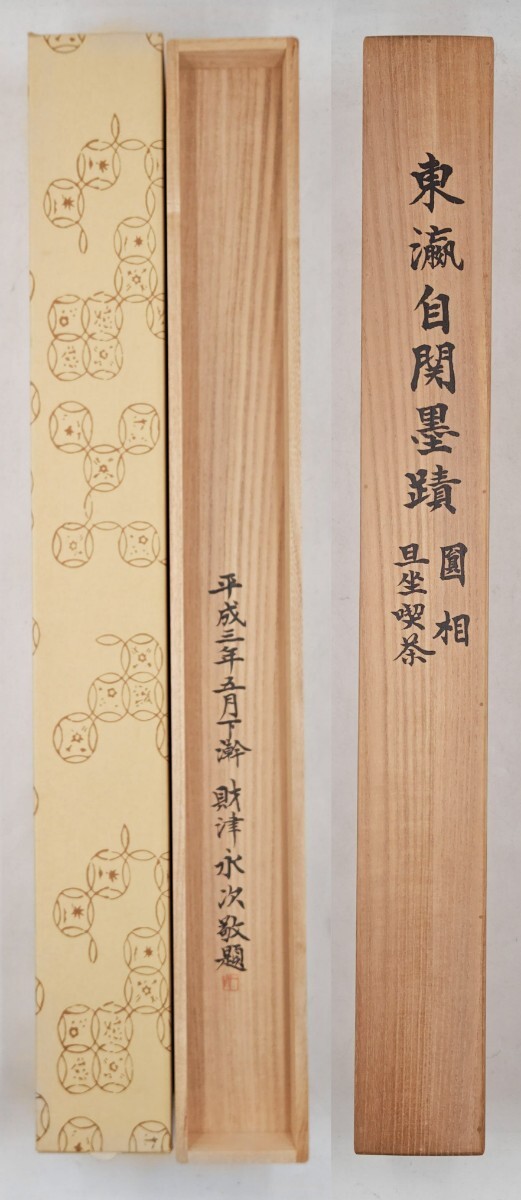 東瀛自関墨蹟
圓相
旦坐喫茶
平成三年五月下澣 財津永次敬題